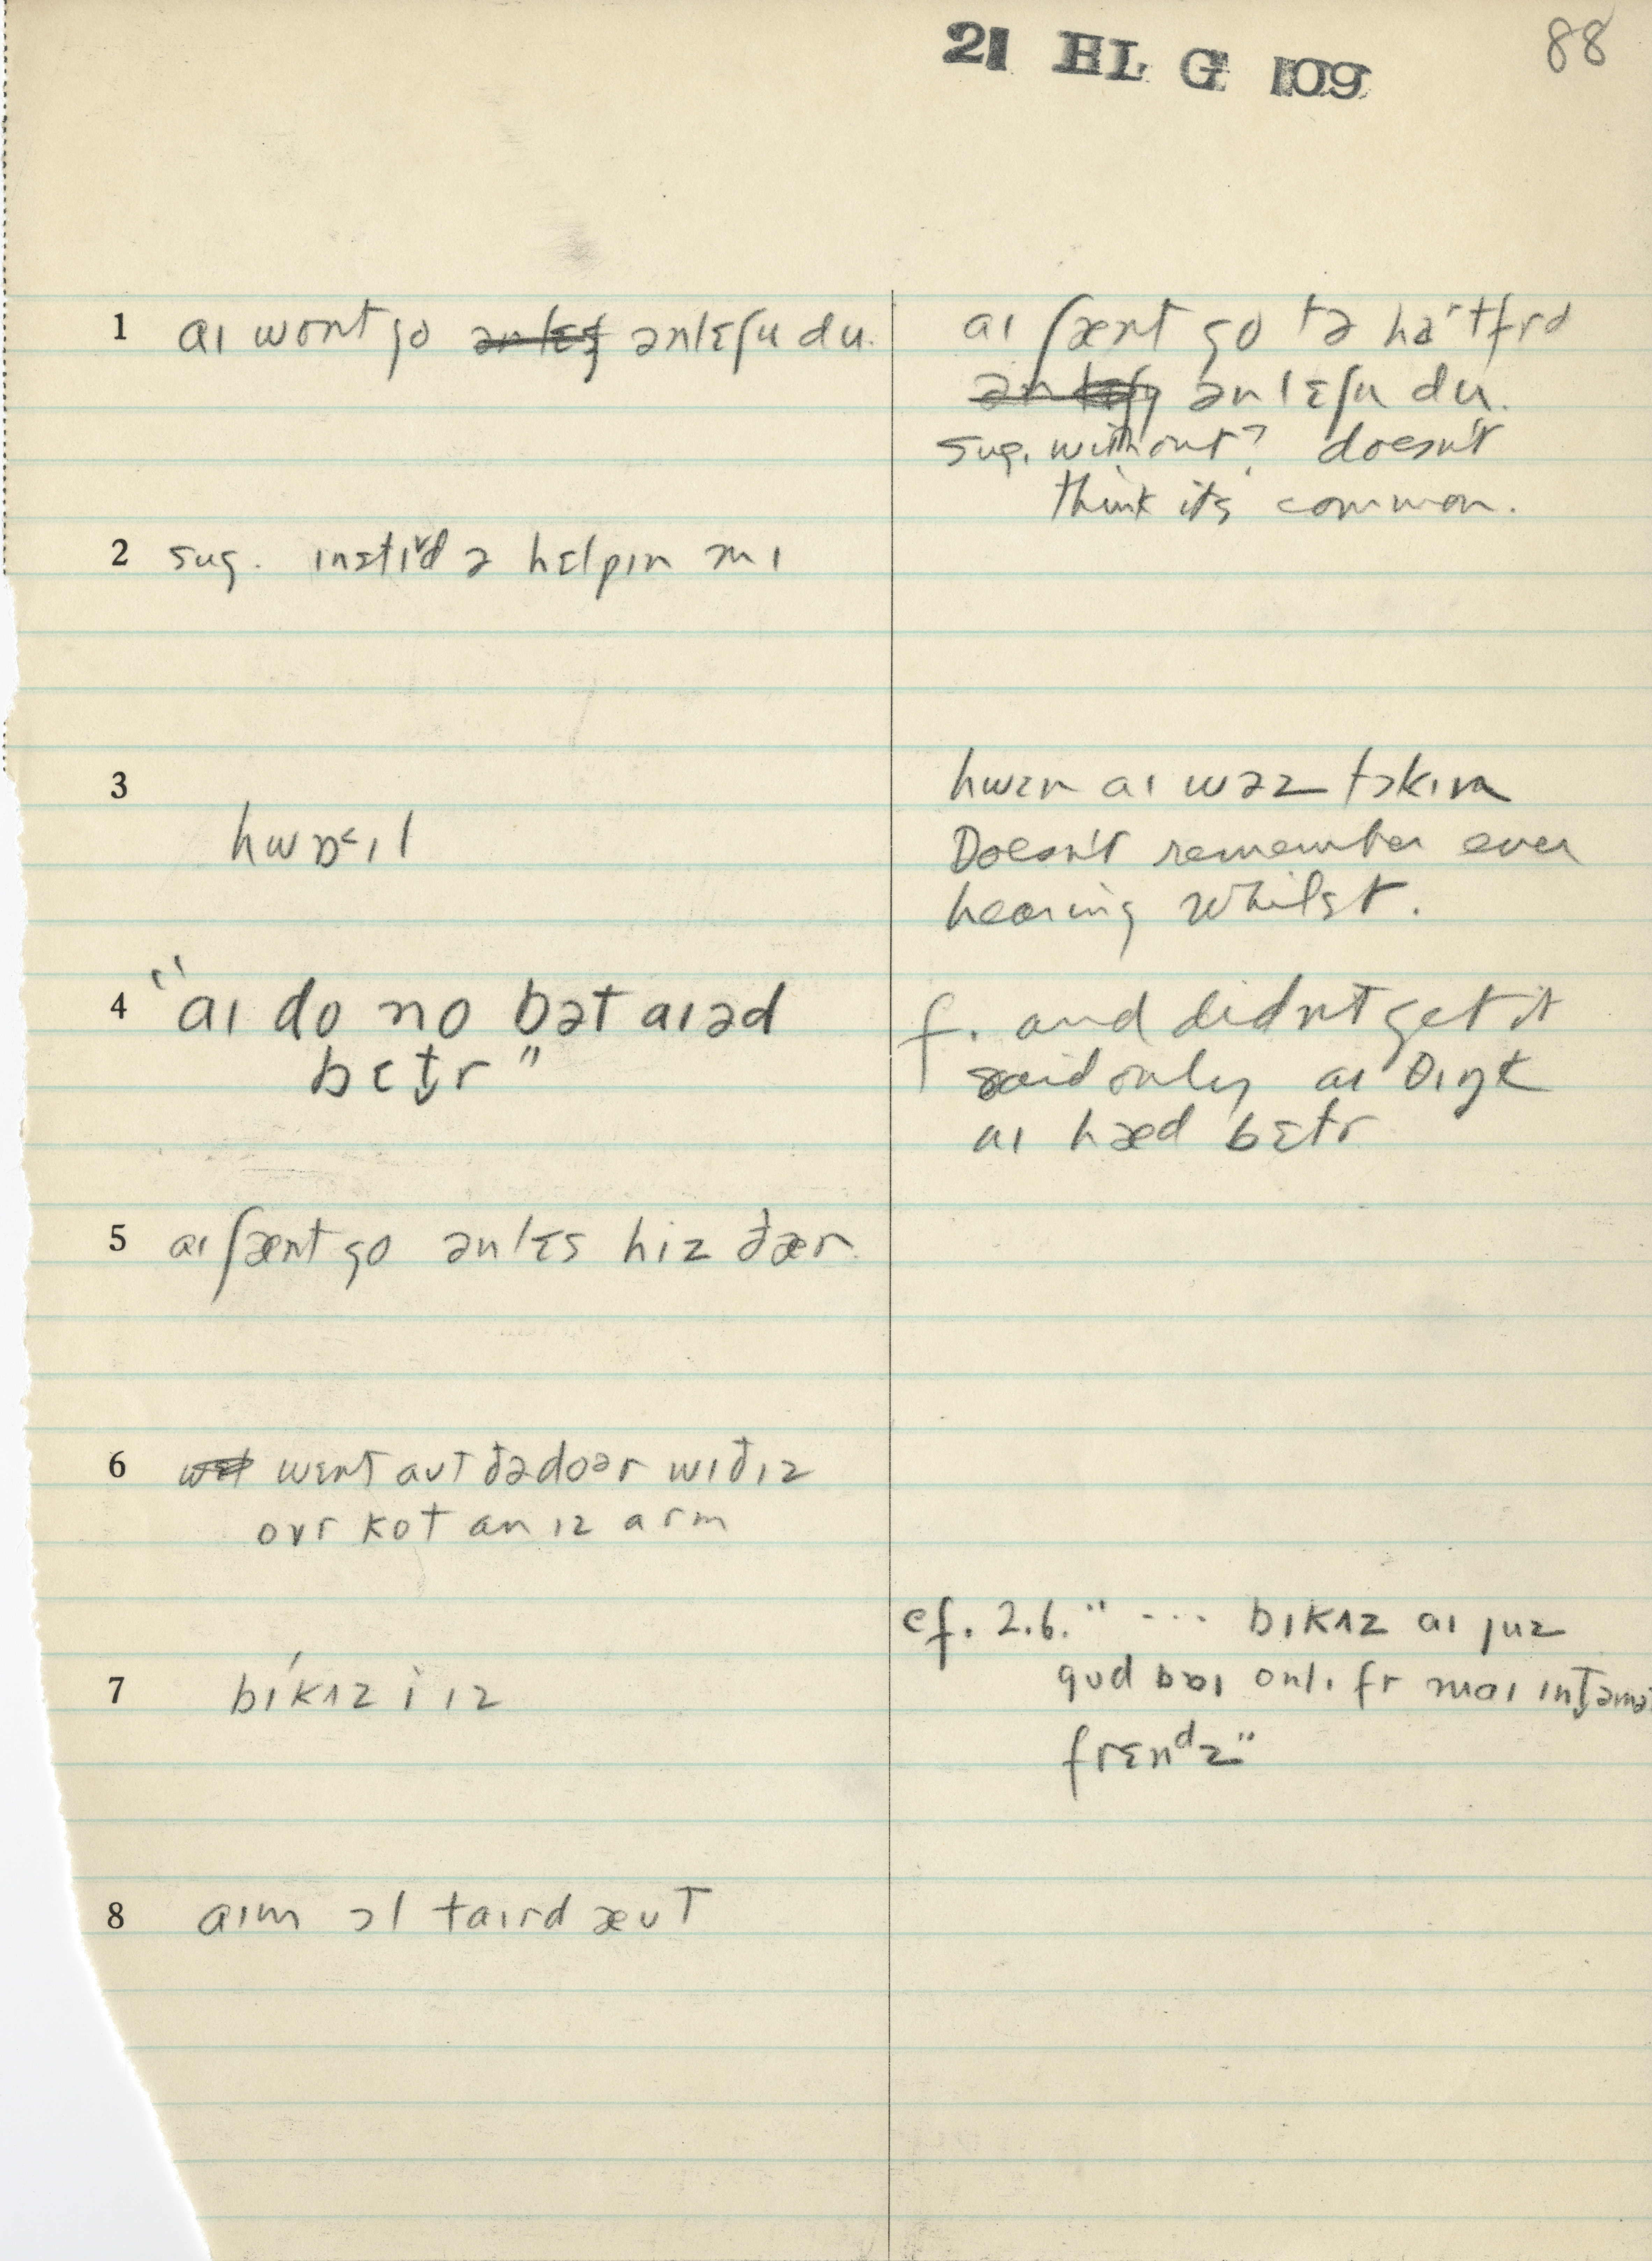 21 HL G 109
88
1 aɪ wont go ənlɛʃu du.
aɪ ʃænt go tə haˑtfrd
ənlɛʃu du.
sug. without? doesn't
think it's common.
2 sug. ɪnstɪᵛd ə hɛlpɪn mɪ
3
hwɒ˂ɪl
hwɛn aɪ wəz tɔkɪn
Doesn't remember ever
hearing whilst.
4 "aɪ do no bət aɪəd
bɛt̬r"
f. and didn't get it
said only aɪ θɪŋk
aɪ hæd bɛtr
5 aɪ ʃænt go ənlɛs hiz ðær
6 wɛnt aʊt ðədoər wɪðɪz
ovr kot an ɪz arm
cf. 2.6. " --- bɪkʌz aɪ juz
7 bɪ́kʌz i ɪz
gʊd onlɪ fr
frɛnᵈz"
8 aɪm ɔl taɪrd æʊt